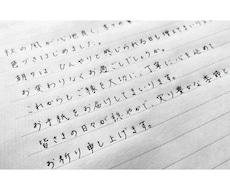 秋の風が心地良く、木々の葉
色づきはじめました。
朝夕は、ひんやりと感じられる日も増えてまいり
お変わりなくお過ごしでしょうか。
これからもご縁を大切に、丁寧に心を込めて
お手紙をお届けしてまいります。
皆さまの日々が穏やかで、実り豊かな季節と
お祈り申し上げます。